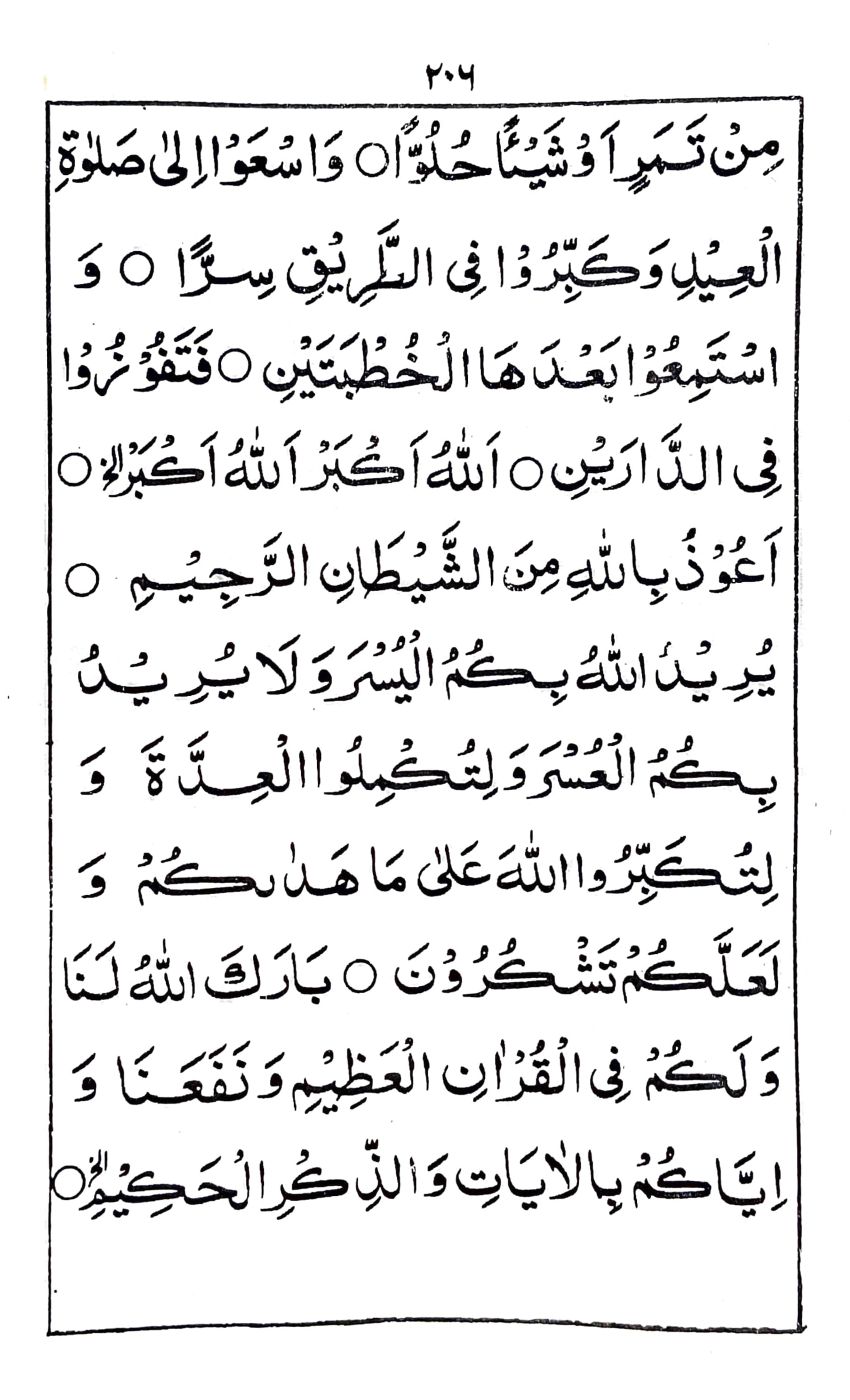 ۲۰۶
مِنْ تَمَرٍ اَوْ شَيْئًا حُلُوًّا ○ وَاسْعَوْا اِلٰى صَلٰوةِ
الْعِيْدِ وَكَبِّرُوْا فِى الطَّرِيْقِ سِرًّا ○ وَ
اسْتَمِعُوْا بَعْدَهَا الْخُطْبَتَيْنِ ○ فَتَفُوْزُوْا
فِى الدَّارَيْنِ ○ اَللّٰهُ اَكْبَرْ اَللّٰهُ اَكْبَرْ الخ ○
اَعُوْذُ بِاللّٰهِ مِنَ الشَّيْطَانِ الرَّجِيْمِ ○
يُرِيْدُ اللّٰهُ بِكُمُ الْيُسْرَ وَلَا يُرِيْدُ
بِكُمُ الْعُسْرَ وَلِتُكْمِلُوا الْعِدَّةَ وَ
لِتُكَبِّرُوا اللّٰهَ عَلٰى مَا هَدٰىكُمْ وَ
لَعَلَّكُمْ تَشْكُرُوْنَ ○ بَارَكَ اللّٰهُ لَنَا
وَلَكُمْ فِى الْقُرْاٰنِ الْعَظِيْمِ وَنَفَعَنَا وَ
اِيَّاكُمْ بِالْاٰيَاتِ وَالذِّكْرِ الْحَكِيْمِ الخ ○